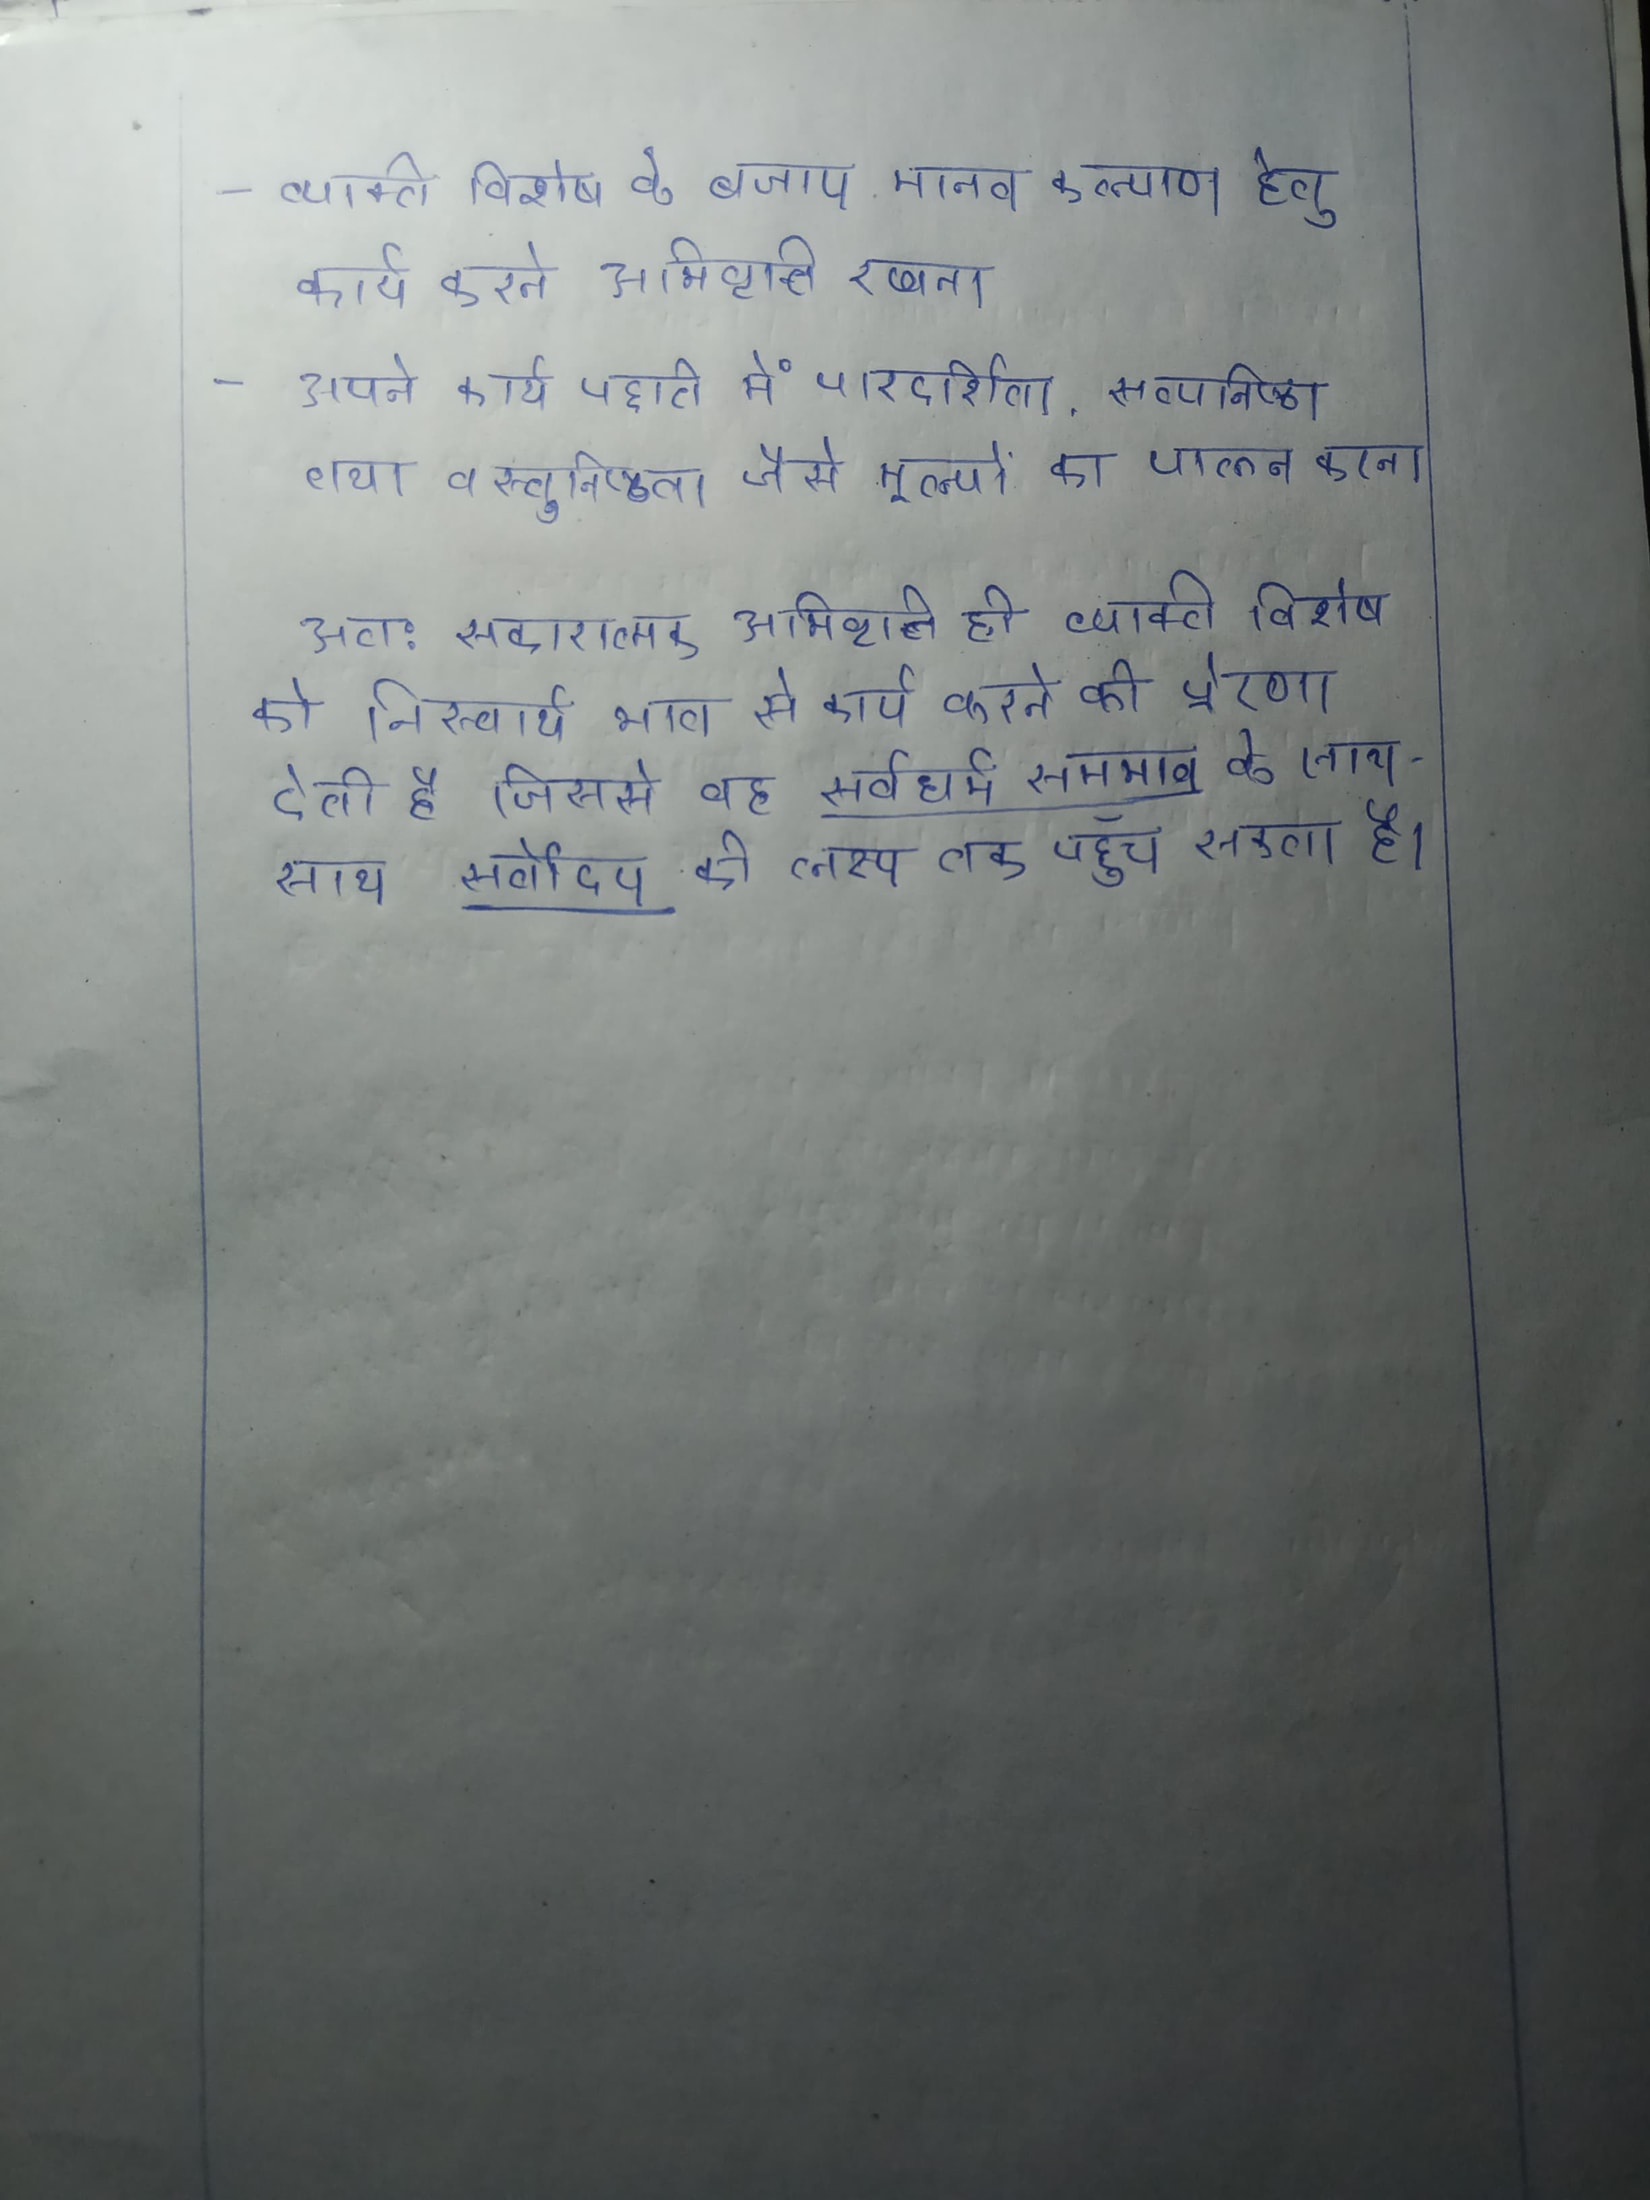 - व्यक्ति विशेष के बजाय मानव कल्याण हेतु
कार्य करने अभिवृत्ति रखना
- अपने कार्य पद्धति में पारदर्शिता, सत्यनिष्ठा
तथा वस्तुनिष्ठता जैसे मूल्यों का पालन करना
अतः सकारात्मक अभिवृत्ति ही व्यक्ति विशेष
को निस्वार्थ भाव से कार्य करने की प्रेरणा
देती है जिससे वह सर्वधर्म समभाव के साथ-
साथ सर्वोदय की लक्ष्य तक पहुँच सकता है।